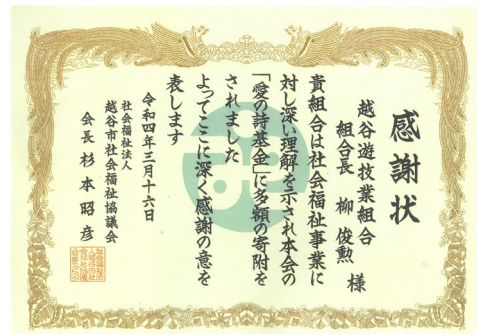 感謝状
越谷遊技業組合
組合長 柳 俊勲 様
貴組合は社会福祉事業に
対し深い理解を示され本会の
「愛の詩基金」に多額の寄附を
されました
よってここに深く感謝の意を
表します
令和四年三月十六日
社会福祉法人
越谷市社会福祉協議会
会長 杉本昭彦